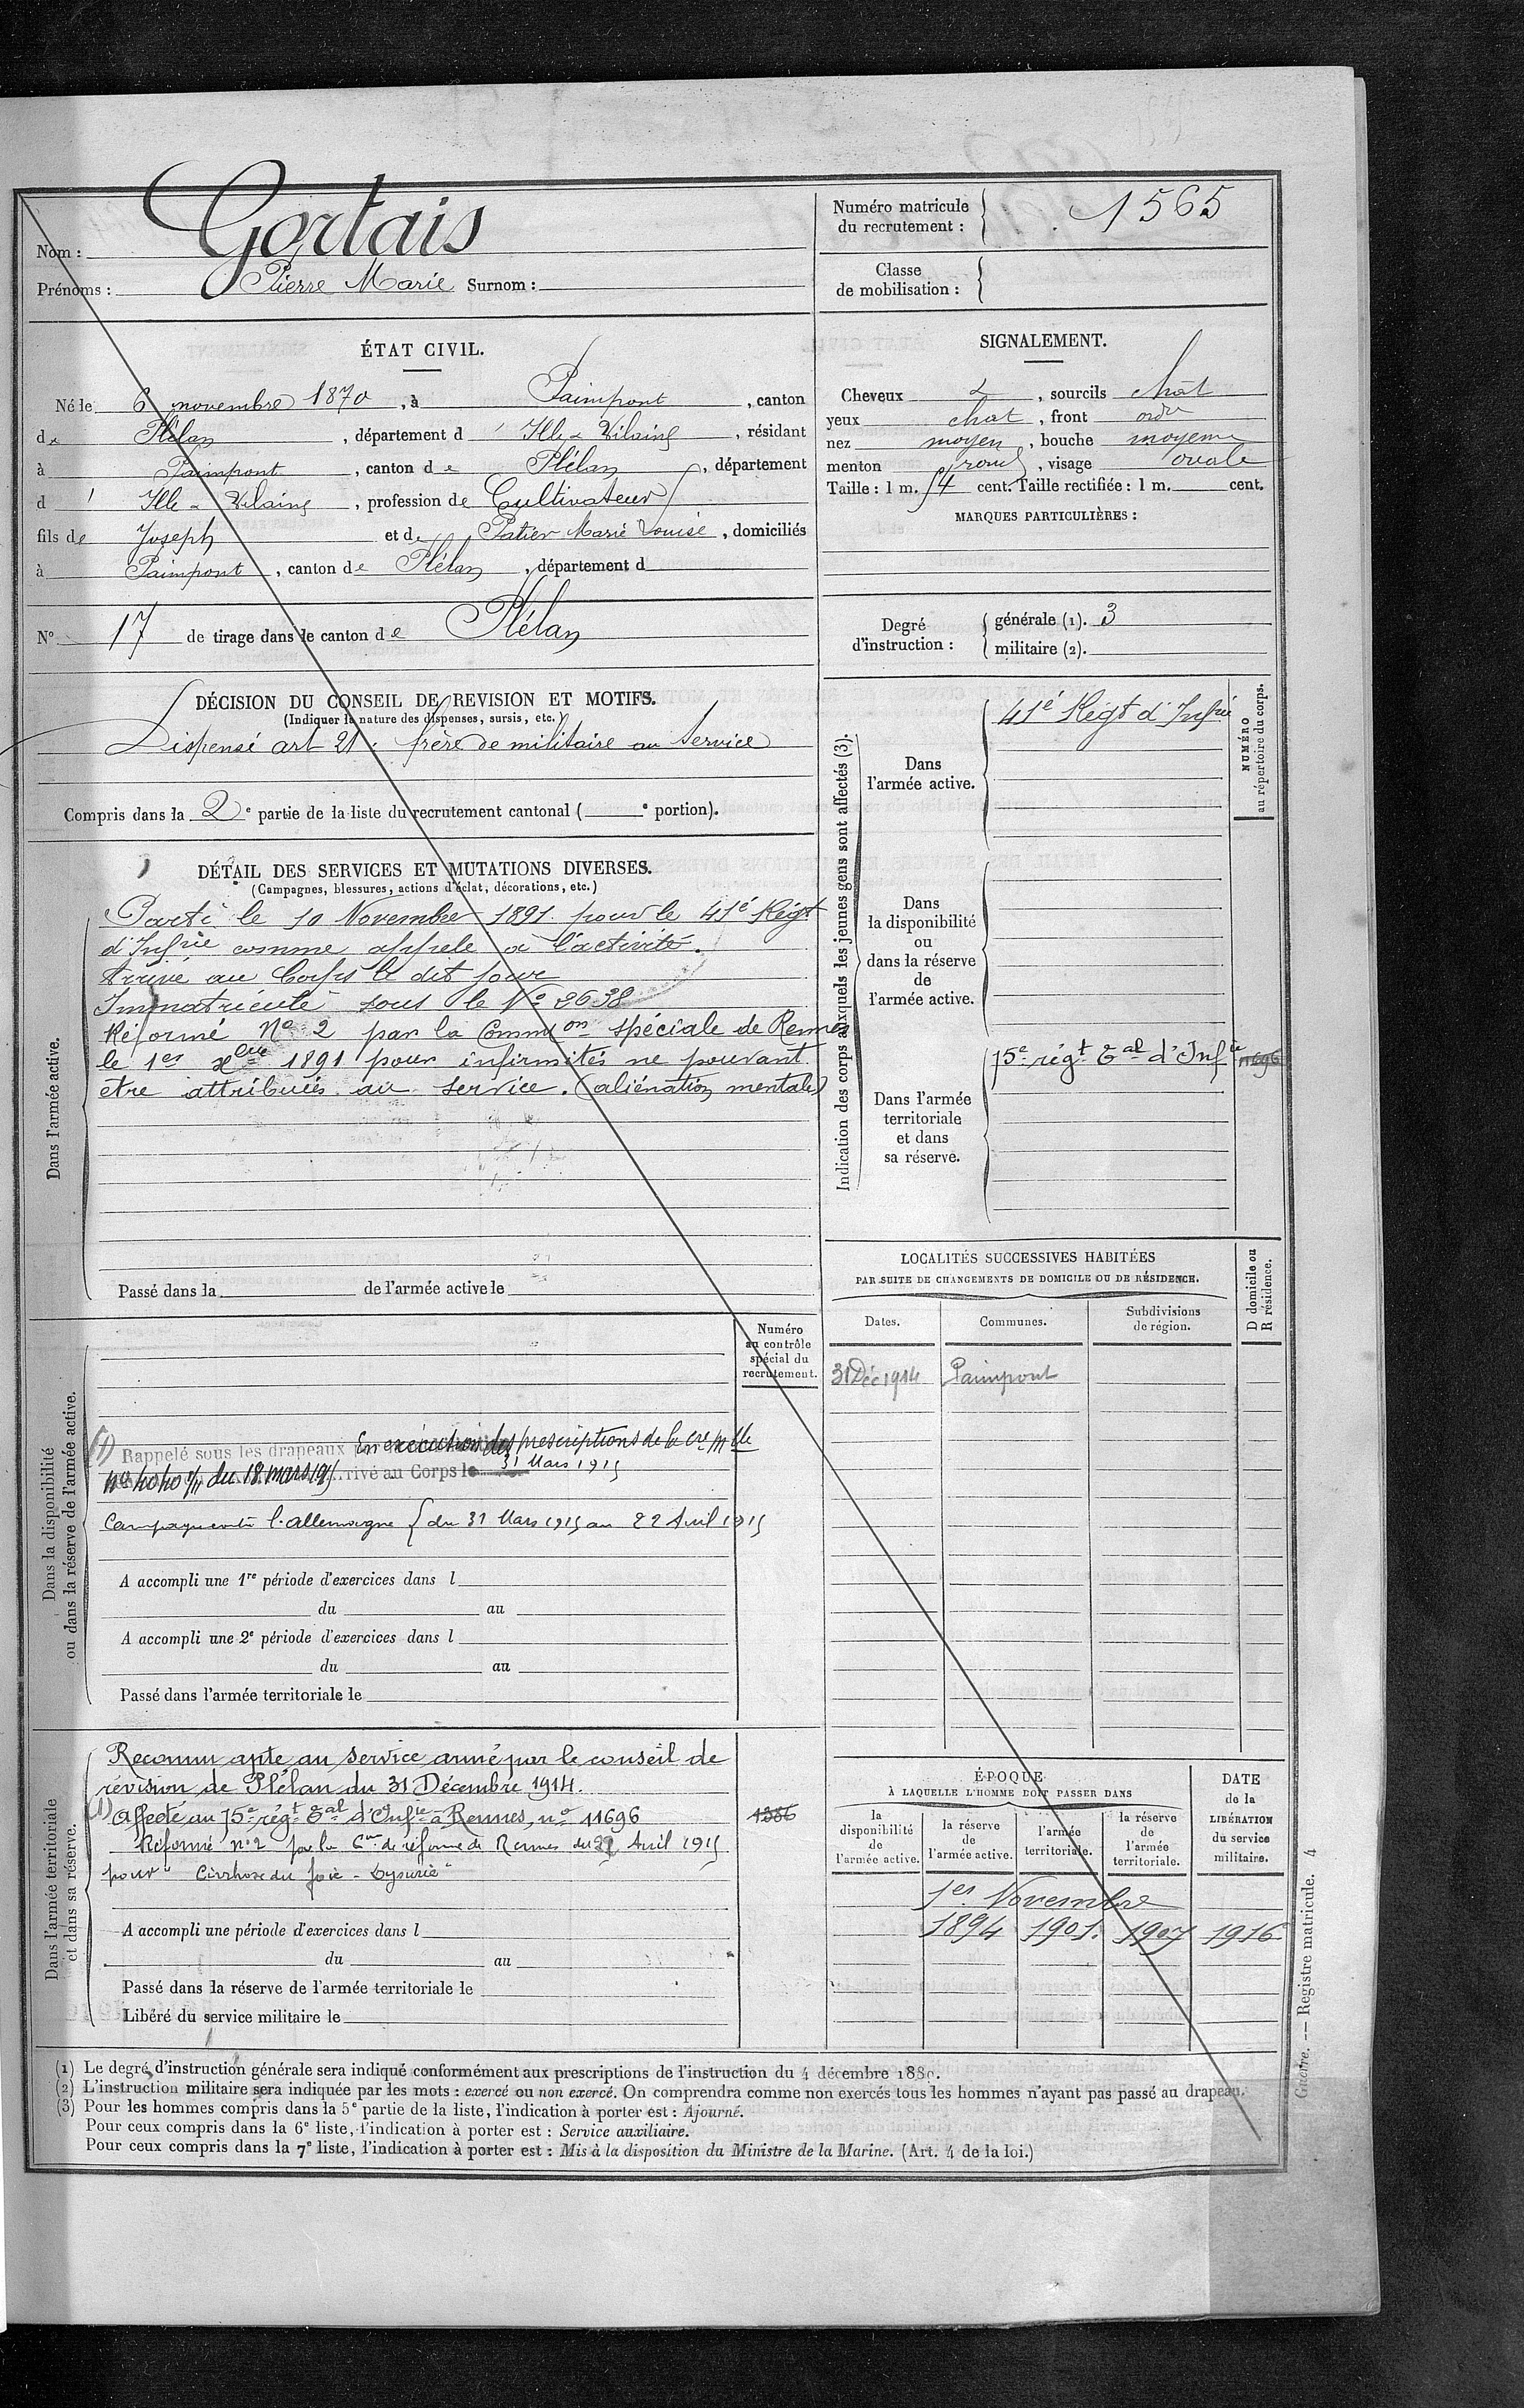 Nom : Gortais
Prénoms : Pierre Marie Surnom :
Numéro matricule du recrutement : 1565
Classe de mobilisation :
ÉTAT CIVIL.
Né le 6 novembre 1870, à Paimpont, canton
de Plélan, département d' Ille & Vilaine, résidant
à Paimpont, canton de Plélan, département
d' Ille & Vilaine, profession de Cultivateur
fils de Joseph et de Patier Marie Louise, domiciliés
à Paimpont, canton de Plélan, département d
N° 17 de tirage dans le canton de Plélan
SIGNALEMENT.
Cheveux &, sourcils chât
yeux chat, front ordre
nez moyen, bouche moyenne
menton rond, visage ovale
Taille : 1 m. 54 cent. Taille rectifiée : 1 m. cent.
MARQUES PARTICULIÈRES :
Degré d'instruction : générale (1). 3
militaire (2).
DÉCISION DU CONSEIL DE REVISION ET MOTIFS.
(Indiquer la nature des dispenses, sursis, etc.)
Dispensé art 21 : frère de militaire au service
Compris dans la 2e partie de la liste du recrutement cantonal ( e portion).
DÉTAIL DES SERVICES ET MUTATIONS DIVERSES.
(Campagnes, blessures, actions d'éclat, décorations, etc.)
Dans l'armée active.
Parti le 10 Novembre 1891 pour le 41é Régt
d'Infrie comme appelé à l'activité.
Arrivé au Corps le dit jour
Immatriculé sous le No 2638
Réformé No 2 par la Common spéciale de Rennes
le 1er xbre 1891 pour infirmités ne pouvant
être attribuées au service. (aliénation mentale)
Passé dans la de l'armée active le
Indication des corps auxquels les jeunes gens sont affectés (3).
NUMÉRO au répertoire du corps.
Dans l'armée active.
41é Régt d'Infrie
Dans la disponibilité ou dans la réserve de l'armée active.
Dans l'armée territoriale et dans sa réserve.
75e régt Tal d'Infie 11696
LOCALITÉS SUCCESSIVES HABITÉES
PAR SUITE DE CHANGEMENTS DE DOMICILE OU DE RÉSIDENCE.
Dates. Communes. Subdivisions de région. D domicile ou R résidence.
31 Déc 1914 Paimpont
Dans la disponibilité ou dans la réserve de l'armée active.
Numéro au contrôle spécial du recrutement.
(1) Rappelé sous les drapeaux En exécution des prescriptions de la cre mlle
du 18 mars 1915 rrivé au Corps le 31 Mars 1915
Campagne contre l'allemagne { du 31 Mars 1915 au 22 Avril 1915
A accompli une 1re période d'exercices dans l
du au
A accompli une 2e période d'exercices dans l
du au
Passé dans l'armée territoriale le
Dans l'armée territoriale et dans sa réserve.
Reconnu apte au service armé par le conseil de
révision de Plélan du 31 Décembre 1914.
(1) Affecté au 75e régt Tal d'Infie à Rennes, no 11696
1386
Réformé no 2 par la Con de réforme de Rennes du 22 Avril 1915
pour "Cirrhose du foie - Dysurie"
A accompli une période d'exercices dans l
du au
Passé dans la réserve de l'armée territoriale le
Libéré du service militaire le
ÉPOQUE
À LAQUELLE L'HOMME DOIT PASSER DANS
la disponibilité de l'armée active. la réserve de l'armée active. l'armée territoriale. la réserve de l'armée territoriale.
DATE de la LIBÉRATION du service militaire.
1er Novembre
1894 1901. 1907 1916
Guerre. — Registre matricule. 4
(1) Le degré d'instruction générale sera indiqué conformément aux prescriptions de l'instruction du 4 décembre 1889.
(2) L'instruction militaire sera indiquée par les mots : exercé ou non exercé. On comprendra comme non exercés tous les hommes n'ayant pas passé au drapeau.
(3) Pour les hommes compris dans la 5e partie de la liste, l'indication à porter est : Ajourné.
Pour ceux compris dans la 6e liste, l'indication à porter est : Service auxiliaire.
Pour ceux compris dans la 7e liste, l'indication à porter est : Mis à la disposition du Ministre de la Marine. (Art. 4 de la loi.)